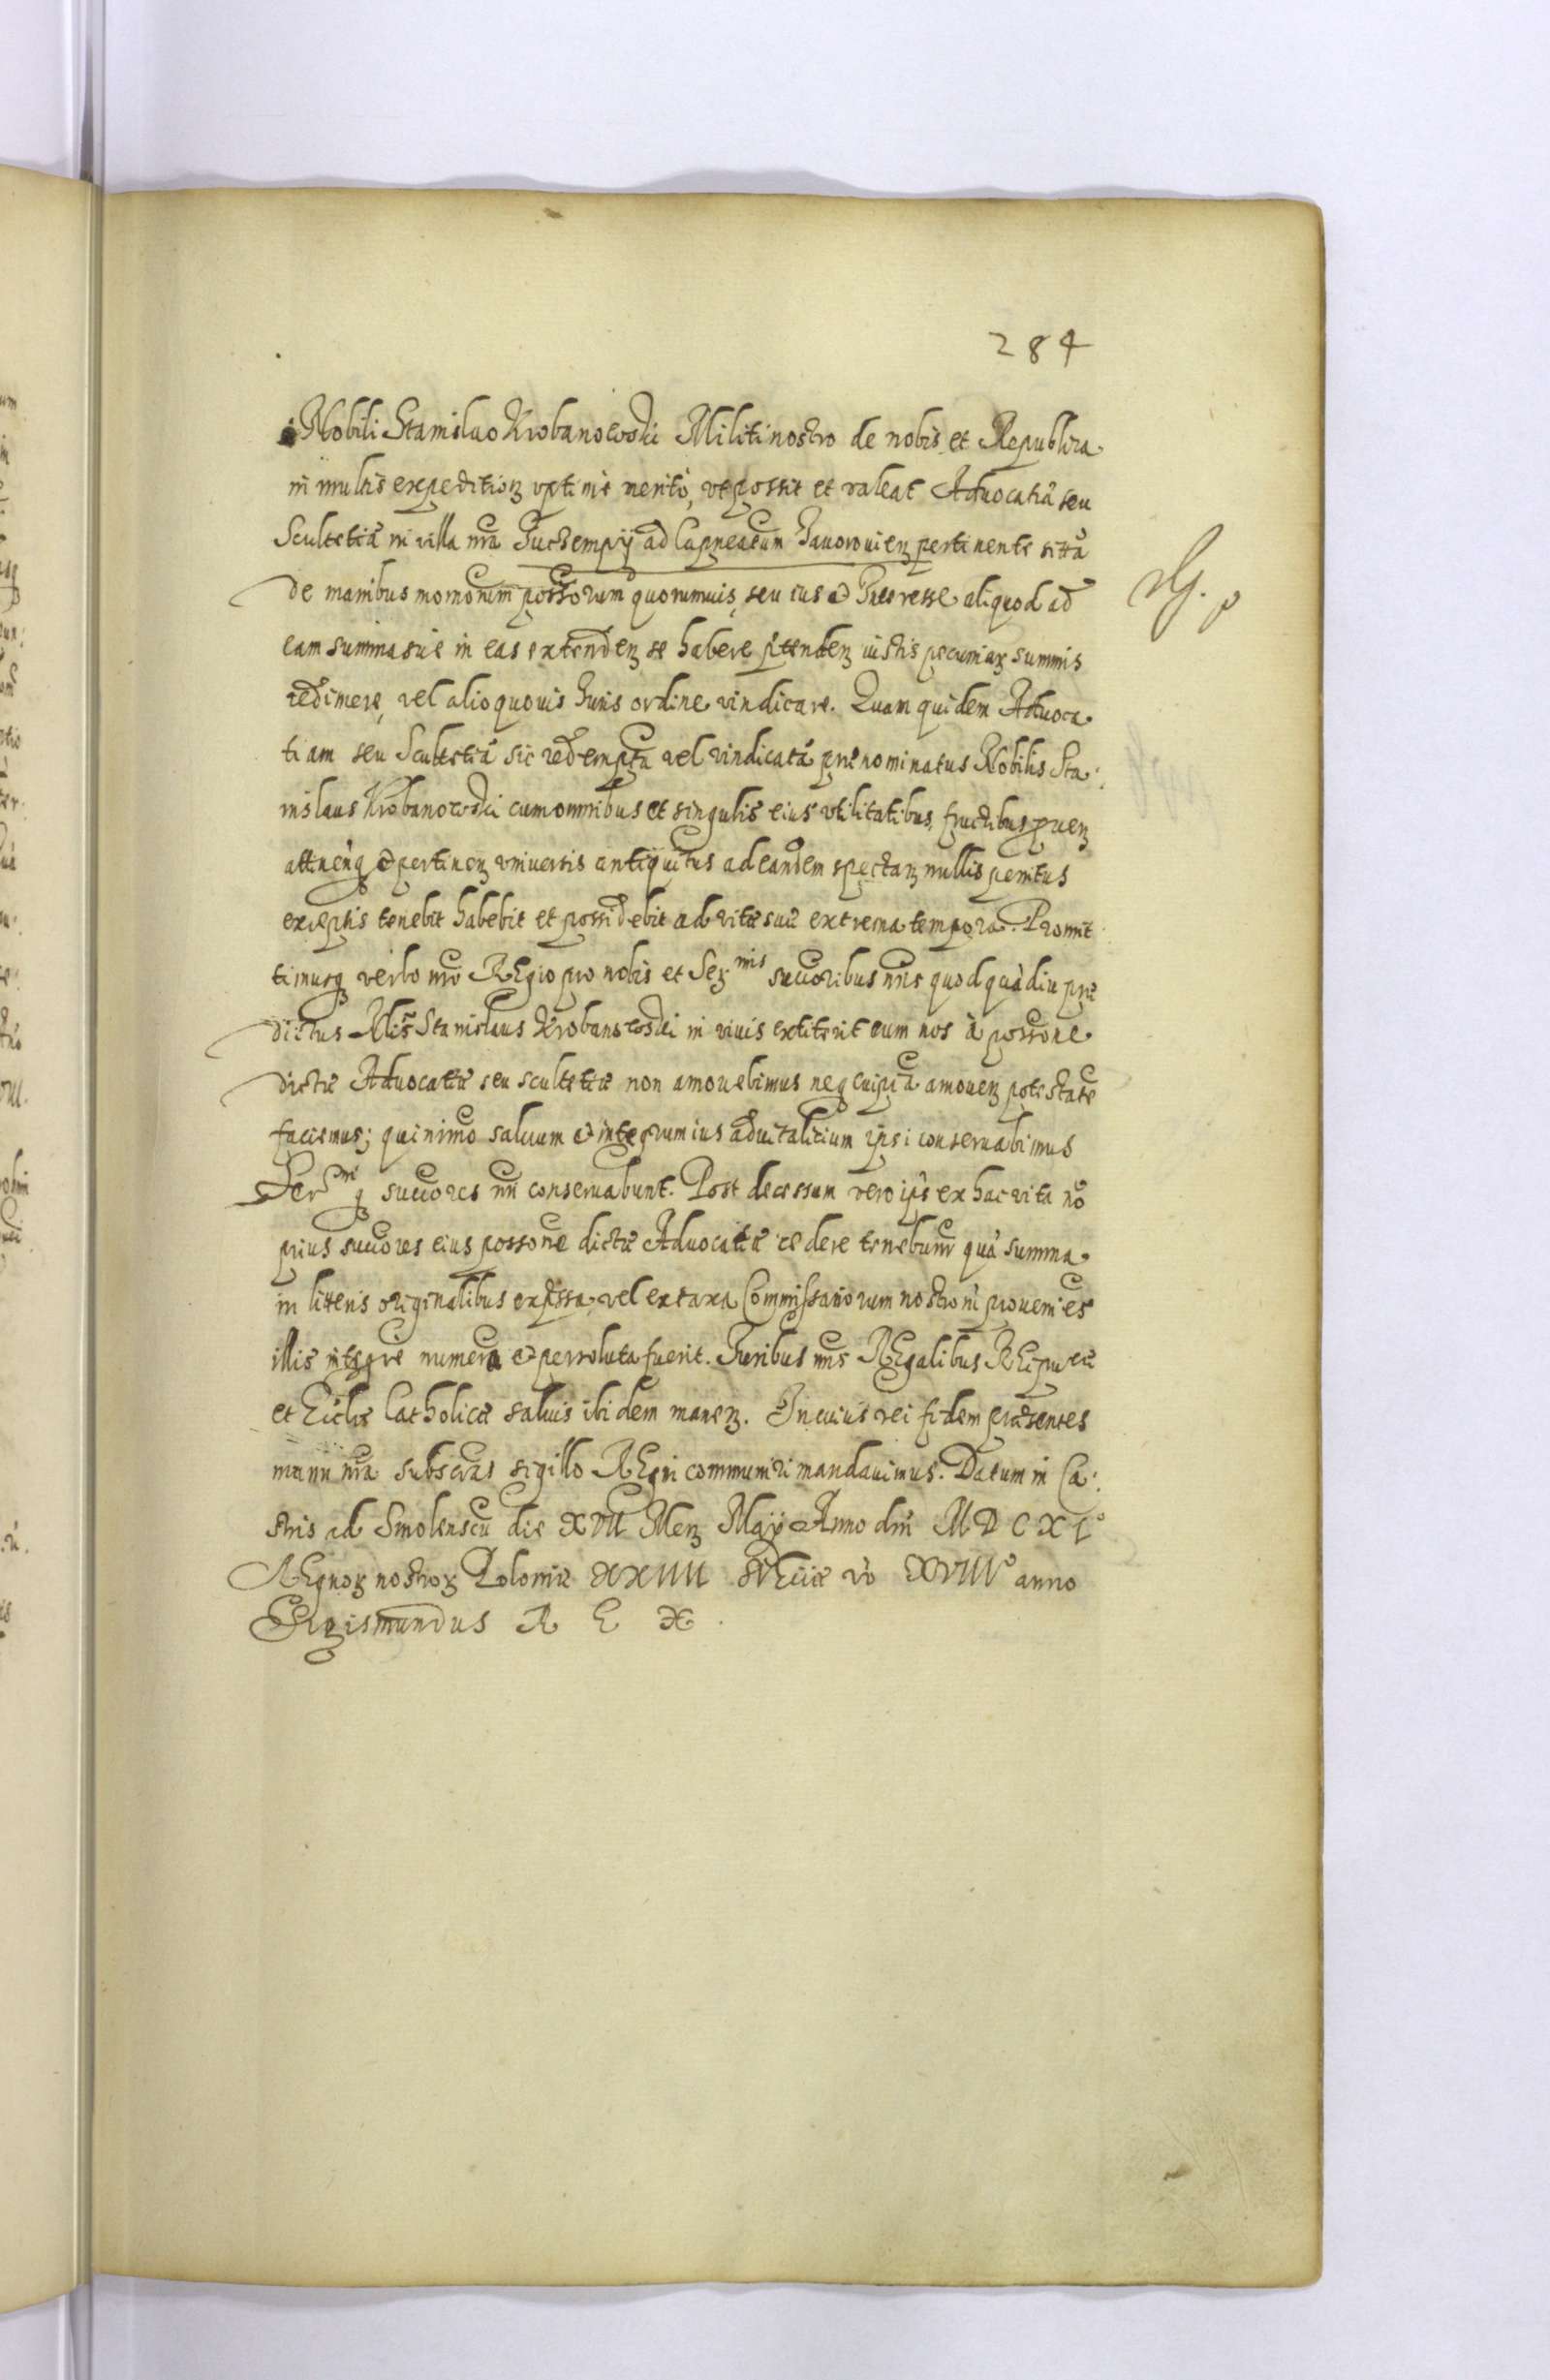 284
Nobili Stanislao Krobanowski Militi nostro de nobis et Republica
in multis expeditionꝫ optime merito, ut possit et valeat Advocatiā seu
Scultetiā in villa nrã ad Capneatum Iavorovienꝫ pertinente sittā
de manibus modernorum possorum quorumvis, seu ius et Interesse aliquod ad
eam summasue in eas extendenꝫ se habere p̃tendenꝫ iustis pecuniaꝝ summis
redimere, vel alio quovis Iuris ordine vindicare. Quam quidem Advoca
tiam seu Scultetiā sic redemptā vel vindicatā prænominatus Nobilis Sta:
nislaus Krobanowski cum omnibus et singulis eius utilitatibus, fructibus provenꝫ
attinenꝫ et pertinenꝫ universis antiquitus ad eandem spectanꝫ nullis penitus
exceptis tenebit habebit et possidebit ad vitæ suæ extrema tempora. Promit
timusꝗ verbo nrõ REgio pro nobis et Serꝫmis succoribus nris quod quādiu præ
dictus Nlis Stanislaus Krobanowski in vivis extiterit eum nos à possone
dictæ Advocatiæ seu scultetiæ non amovebimus neꝗ cuipiā amovenꝫ potestatē
faciemus; quinimo salvum et integrum ius advitalitium ipsi conservabimus
Sermiꝗ succores nri conservabunt. Post decessum vero ipīs ex hac vita nō
prius succores eius possone dictæ Advocatiæ cedere tenebunr quā summa
in litteris originalibus exp̃ssa, vel ex taxa Commissariorum nostrorū proveniēs
illis integre numerā et persoluta fuerit. Iuribus nris REgalibus REipucæ
et Ecclæ Catholicæ salvis ibidem manenꝫ. In cuius rei fidem præsentes
manu nrã subscras sigillo REgni communiri mandavimus. Datum in Ca:
stris ad Smolenscū die XVII Menꝫ Maij Anno dni MDCXI°
REgnoꝝ nostroꝝ Poloniæ XXIIII SVEciæ vō XVIII° anno
Sigismundus R E X.